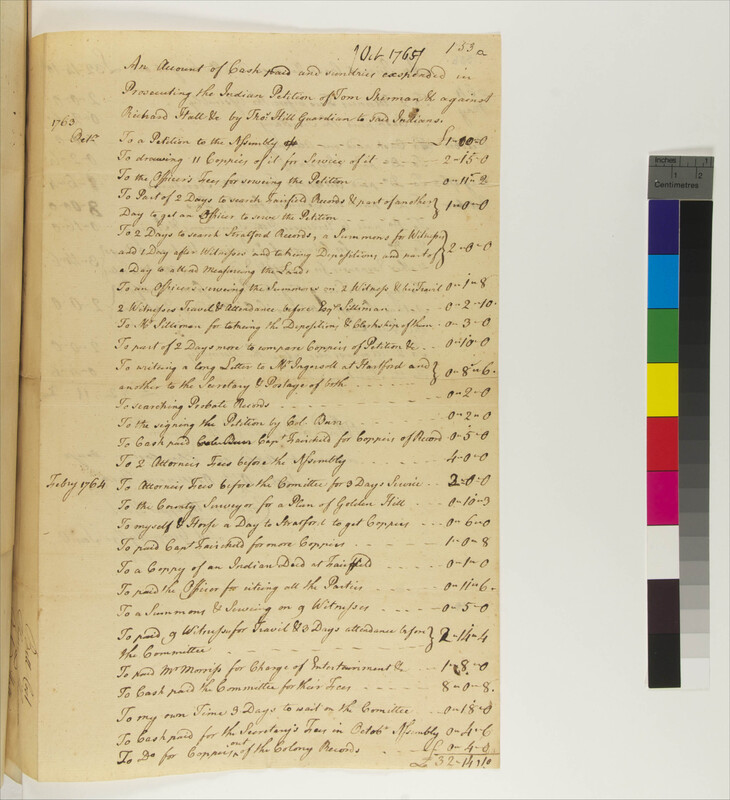 Oct 1765
133a
An Account of Cash paid and sundries expended in
Prosecuting the Indian Petition of Tom Sherman & against
Richard Hall &c by Thos. Hill Guardian to said Indians.
1763
Octr. To a Petition to the Assembly £1-00-0
To drawing 11 Coppies of it for Service of it 2-15-0
To the Officer's Fees for serveing the Petition 0-11-8
To Part of 2 Days to search Fairfield Records & part of another
Day to get an Officer to serve the Petition 1-0-0
To 2 Days to search Stratford Records, a Summons for Witnesses
and 1 Day after Witnesses and takeing Depositions and part of 2-0-0
a Day to attend Measuring the Lands
To an Officers serveing the Summons on 2 Witness & his Travil 0-1-8
2 Witnesses Travel & Attendance before Esqr. Silliman 0-2-10
To Mr. Silliman for takeing the Depositions & Clerkship of them 0-3-0
To part of 2 Days more to compare Coppies of Petition &c 0-10-0
To writeing a long Letter to Mr. Ingersoll at Hartford and
another to the Secretary & Postage of both 0-8-6
To searching Probate Records 0-2-0
To the signing the Petition by Col. Burr 0-2-0
To Cash paid Capt. Fairchild for Coppies of Record 0-5-0
To 2 Attorneis Fees before the Assembly 4-0-0
Febry 1764. To Attorneis Fees before the Comittee for 3 Days Service 2-0-0
To the County Surveyor for a Plan of Golden Hill 0-10-3
To myself & Horse a Day to Stratford to get Coppies 0-6-0
To paid Capt. Fairchild for more Coppies 1-0-8
To a Coppy of an Indian Deed at Fairfield 0-1-0
To paid the Officer for citeing all the Parties 0-11-6
To a Summons & Serveing on 9 Witnesses 0-5-0
To paid 9 Witness for Travil & 3 Days attendance before 2-14-4
the Committee
To paid Mr Morriss for Charge of Entertainment &c 1-8-0
To Cash paid the Committee for their Fees 8-0-8
To my own Time 3 Days to wait on the Comittee 0-18-0
To Cash paid for the Secretary's Fees in Octobr. Assembly 0-4-6
To Do for Coppies out of the Colony Records 0-4-0
£32-14-10